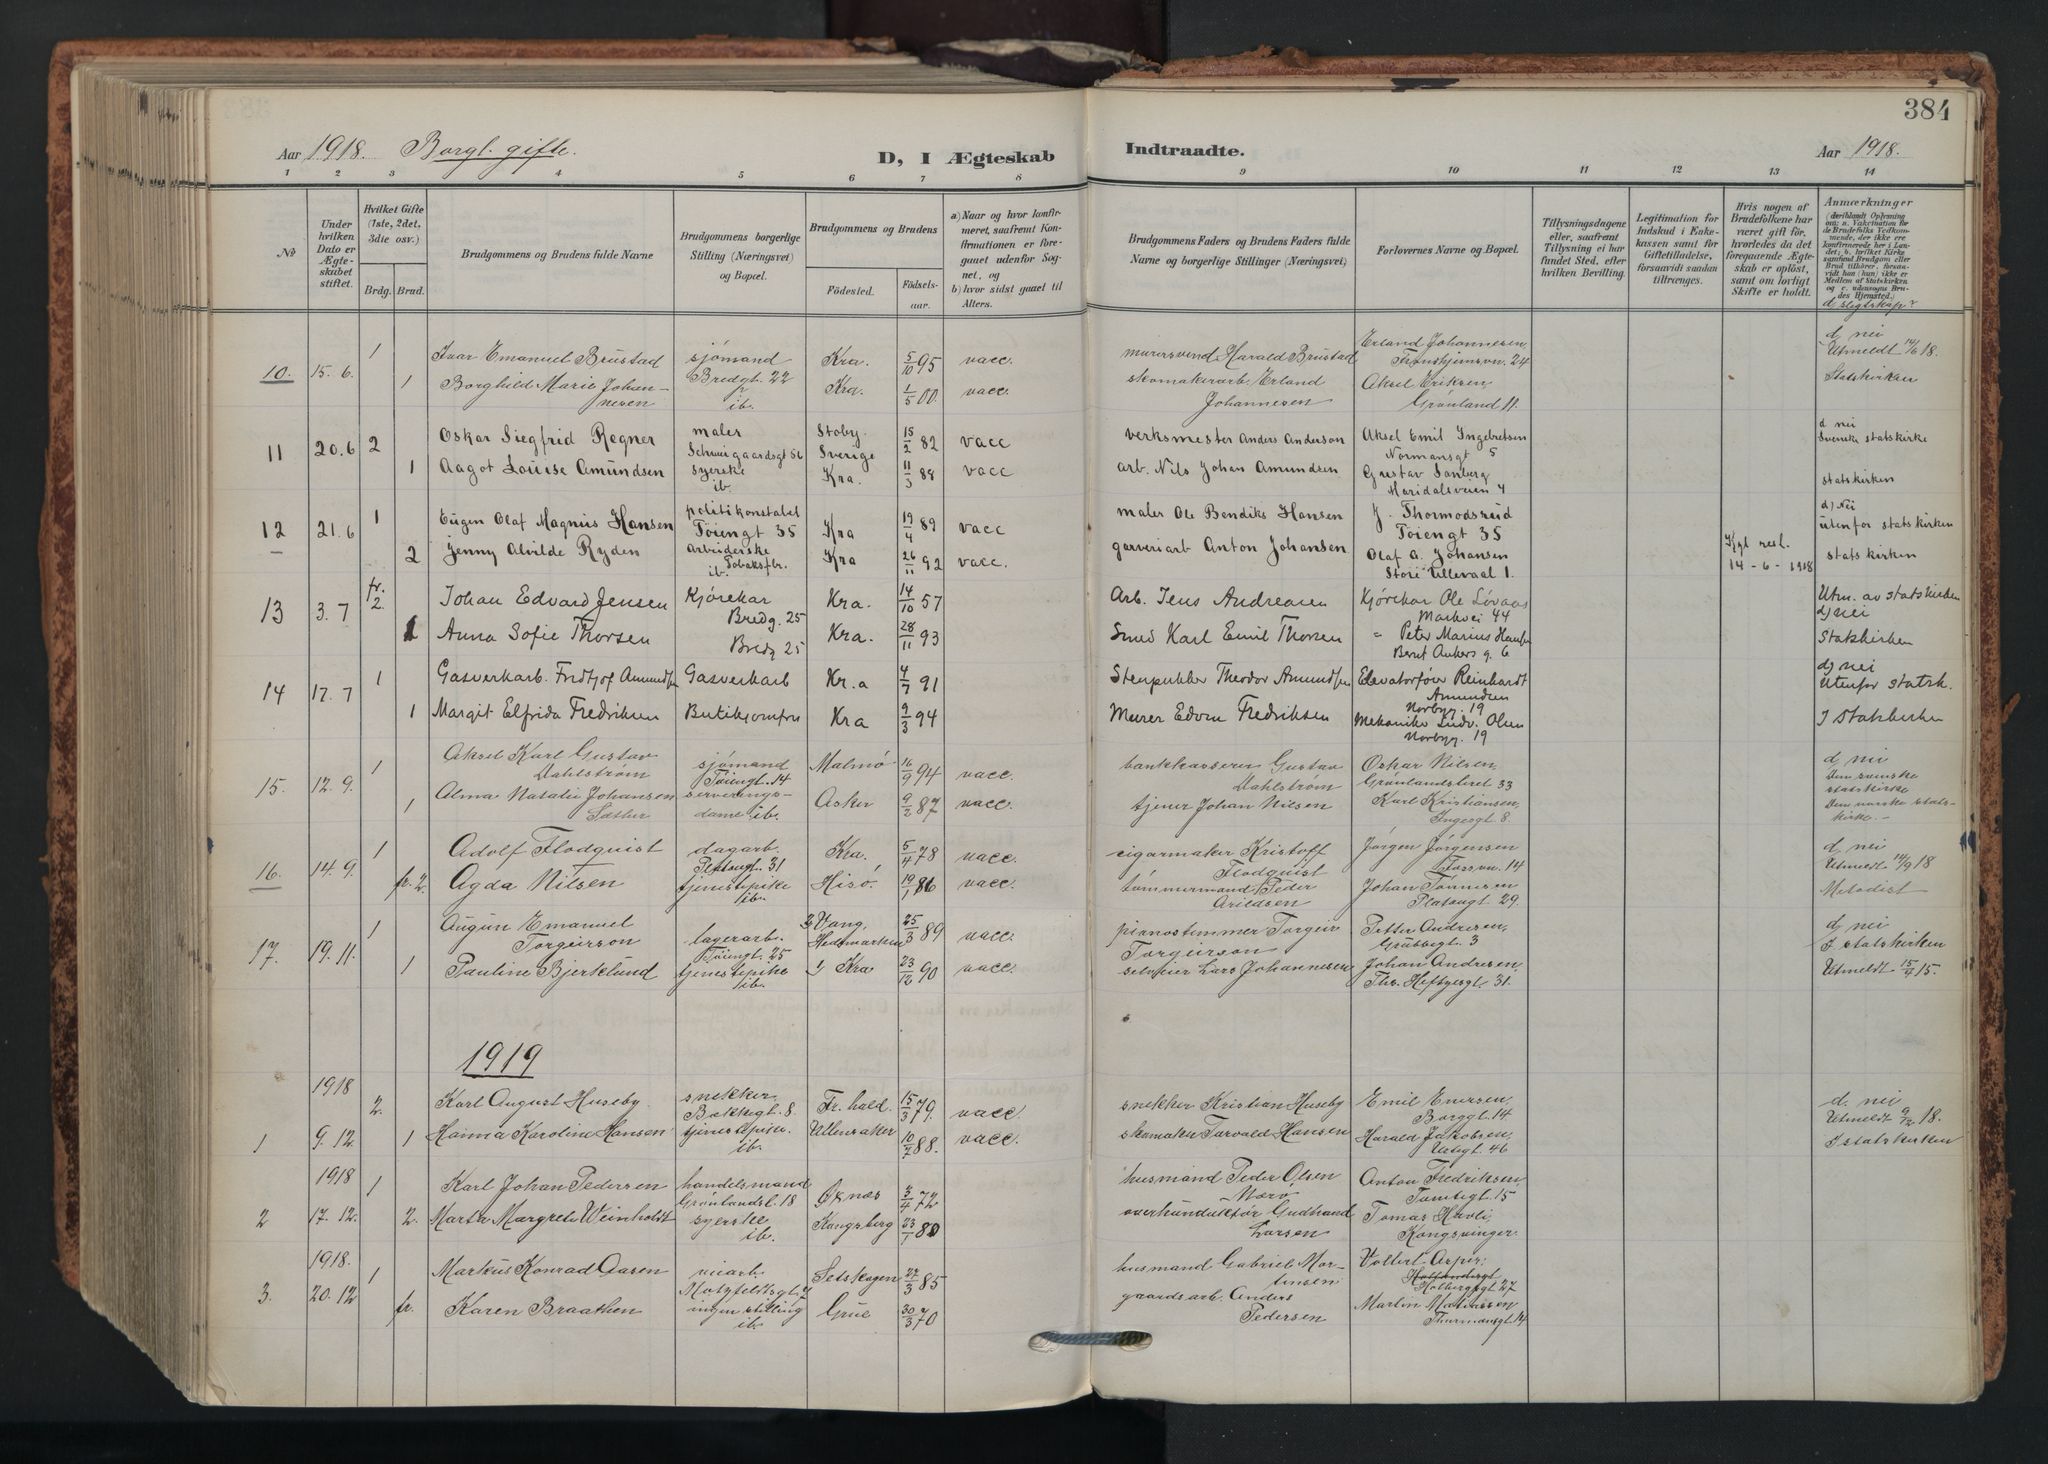 384
Aar 1918. Borgl. gifte. D, I Ægteskab Indtraadte. Aar 1918.
1 2 3 4 5 6 7 8 9 10 11 12 13 14
No
Under hvilken Dato er Ægteskabet stiftet.
Hvilket Gifte (1ste, 2det, 3die osv.)
Brdg. Brud.
Brudgommens og Brudens fulde Navne
Brudgommens borgerlige Stilling (Næringsvei) og Bopæl.
Brudgommens og Brudens
Fødested. Fødsels-aar.
a) Naar og hvor konfirmeret, saafremt Konfirmationen er foregaaet udenfor Sognet, og
b) hvor sidst gaaet til Alters.
Brudgommens Faders og Brudens Faders fulde Navne og borgerlige Stillinger (Næringsvei)
Forlovernes Navne og Bopæl.
Tillysningsdagene eller, saafremt Tillysning ei har fundet Sted, efter hvilken Bevilling.
Legitimation for Indskud i Enkekassen samt for Giftetilladelse, forsaavidt saadan tiltrænges.
Hvis nogen af Brudefolkene har været gift før, hvorledes da det foregaaende Ægteskab er opløst, samt om lovligt Skifte er holdt.
Anmærkninger
d slegtskap?
10. 15.6. 1 Ivar Emanuel Brustad sjømand Bredgt. 22 Kra. 5/10 95 vacc. murersvend Harald Brustad Erland Johannesen, Trondhjemsvn. 24 d, nei Utmeldt 14/6 18.
1 Borghild Marie Johannesen ib. Kra. 1/5 00. vacc. skomakerarb. Erland Johannesen Aksel Eriksen Grønland 11. Statskirken
11 20.6 2 Oskar Siegfrid Regner maler Schweigaardsgt 56 Stoby Sverige 15/2 82 vacc verksmester Anders Anderson Aksel Emil Ingebretsen Normansgt 5 d nei Svenske statskirke
1 Aagot Louise Amundsen syerske ib. Kra. 11/3 88 vacc arb. Nils Johan Amundsen Gustav Sanberg Maridalsveien 4 statskirken
12 21.6 1 Eugen Olaf Magnus Hansen politikonstabel Tøiengt 35 Kra 19/4 89 vacc maler Ole Bendiks Hansen J. Thormodsrud Tøiengt 35 d) Nei utenfor statskirken
2 Jenny Alvilde Ryden arbeiderske Tobaksfbr. ib. Kra 26/11 92 vacc. garveriarb Anton Johansen Olaf A. Johansen Store Ullevaal 1. Kgl resl. 14-6-1918 statskirken
13 3.7 fr. 2. Johan Edvard Jensen Kjørekar Bredg. 25 Kra. 14/10 57 Arb. Jens Andreasen Kjørekar Ole Løvaas Markvei 44 Utm. av statskirken d) nei
1 Anna Sofie Thorsen Bredg 25 Kra. 28/11 93 Smed Karl Emil Thorsen " Peter Marius Hansen Bernt Ankers g. 6 Statskirken
14 17.7 1 Gasverkarb. Fridtjof Amundsen Gasverkarb Kr.a 4/7 91 Stenpukker Theodor Amundsen Elevatorfører Reinhardt Amundsen Norbyg. 19 d) nei Utenfor statsk.
1 Margit Elfrida Fredriksen Butikjomfru Kra 9/3 94 Murer Edvin Fredriksen Mekaniker Ludv. Olsen Norbyg. 19 I Statskirken
15. 12.9. 1 Aksel Karl Gustav Dahlstrøm sjømand Tøiengt. 14 Malmø 16/9 94 vacc. bankkasserer Gustav Dahlstrøm Oskar Nilsen, Grønlandsleret 33 d, nei Den svenske statskirke
1 Alma Natalie Johansen Sæther serveringsdame ib. Asker 9/2 87 vacc. tjener Johan Nilsen Karl Kristiansen, Ingesgt. 8. Den norske statskirke.-
16. 14.9. 1 Adolf Flodquist dagarb. Platousgt. 31 Kra. 5/4 78 vacc. cigarmaker Kristoff Flodquist Jørgen Jørgensen Fossvn. 14 d, nei Utmeldt 14/9 18
fr. 2. Agda Nilsen tjenestepike ib. Hisø. 19/1 86 vacc. tømmermand Peder Arildsen Johan Tønnesen Platougt 29. Metodist
17. 19.11. 1 Augun Emanuel Torgeirson lagerarb. Tøiengt. 25 Vang, Hedemarken 25/3 89 vacc. pianostemmer Torgeir Torgeirson Petter Andresen, Grubbegt. 3 d, nei I statskirken
1 Pauline Bjerklund tjenestepike ib. Kra 23/12 90 vacc. selveier Lars Johannesen Johan Andresen, Ths. Heftyesgt. 31. Utmeldt 15/9 15.
1919
1918
1 9.12. 2. Karl August Huseby. snekker Bakkegt. 8. Fr.hald. 15/3 79. vacc. snekker Kristian Huseby Emil Enersen, Borggt. 14 d. nei Utmeldt 9/2 18.
1 Hanna Karoline Hansen tjenestepike. ib. Ullensaker 10/7 88. vacc. skomaker Torvald Hansen Harald Jakobsen, 46 I statskirken
1918
2 17.12. 1 Karl Johan Pedersen handelsmand Grønlandsl. 18 Øksnes 3/4 72 husmand Peder Olsen Anton Fredriksen, Tomtegt. 15
2. Marta Margrete Weinholdt syerske ib. Kongsberg 23/1 80 overkonduktør Gudbrand Larsen Tomas Havli, Kongsvinger.
1918.
3. 20.12 1 Markus Konrad Aasen veiarb. Motzfeldtsgt. 7 Setskogen 27/3 85 husmand Gabriel Mortensen Vollert Asper, Holbergsgt 27
fr. Karen Braathen ingen stilling ib. Grue 30/3 70 gaardsarb. Anders Pedersen Martin Thurmansgt 14